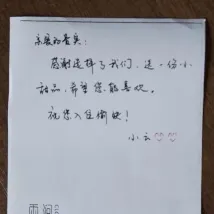 亲爱的贵宾：
感谢选择了我们，送一份小
甜品，希望您能喜欢。
祝您入住愉快！
小云